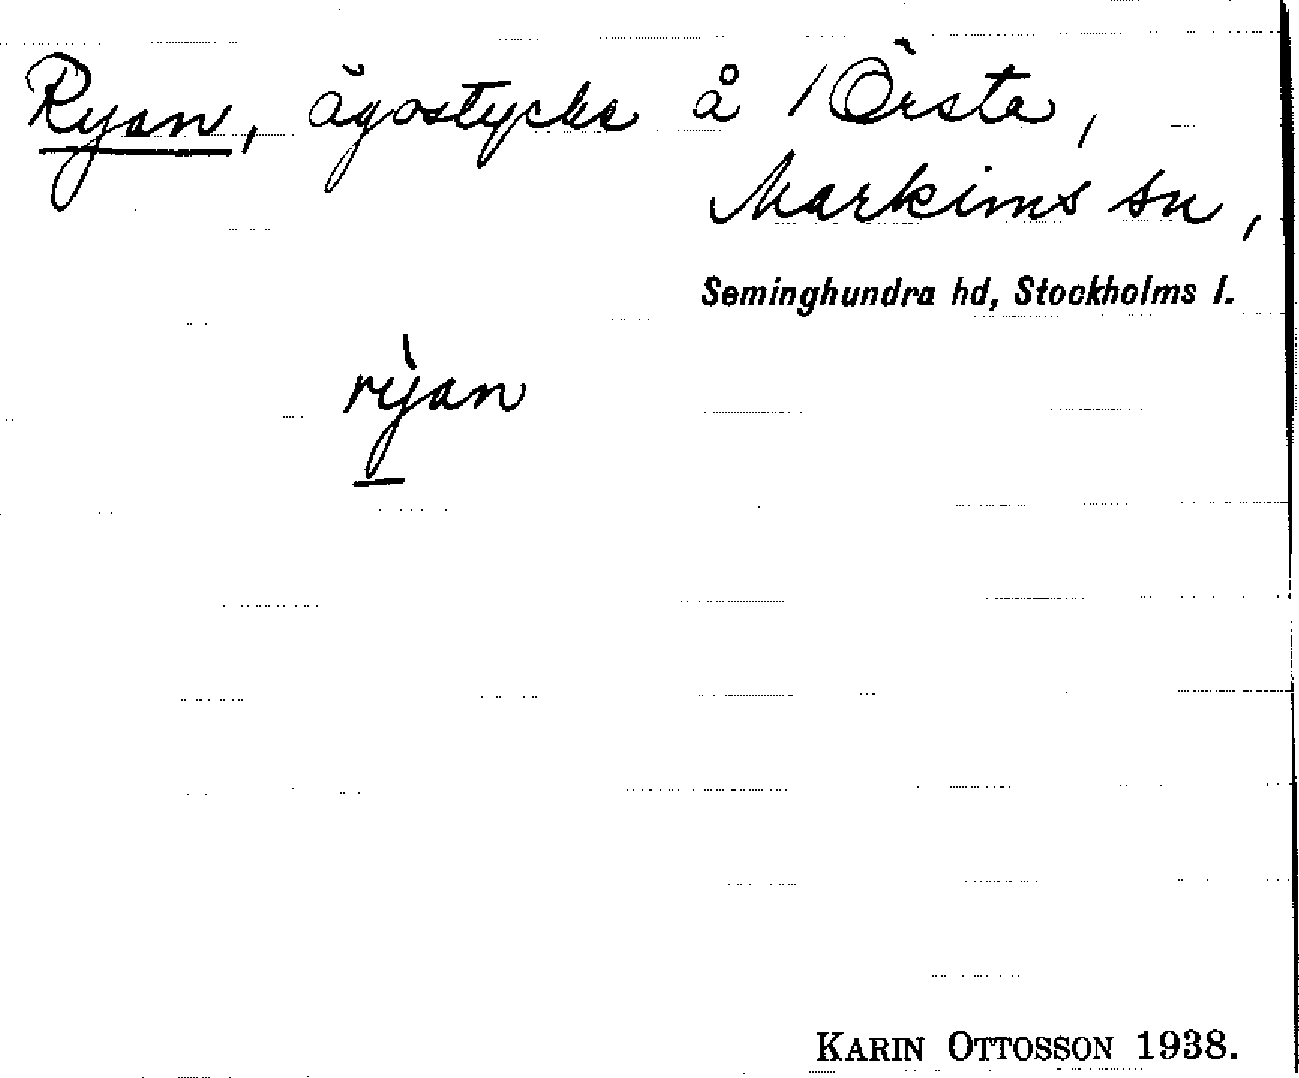 Ryan, ägostycke å /Örsta,
Markims sn,
Seminghundra hd, Stockholms l.
rỳan
KARIN OTTOSSON 1938.